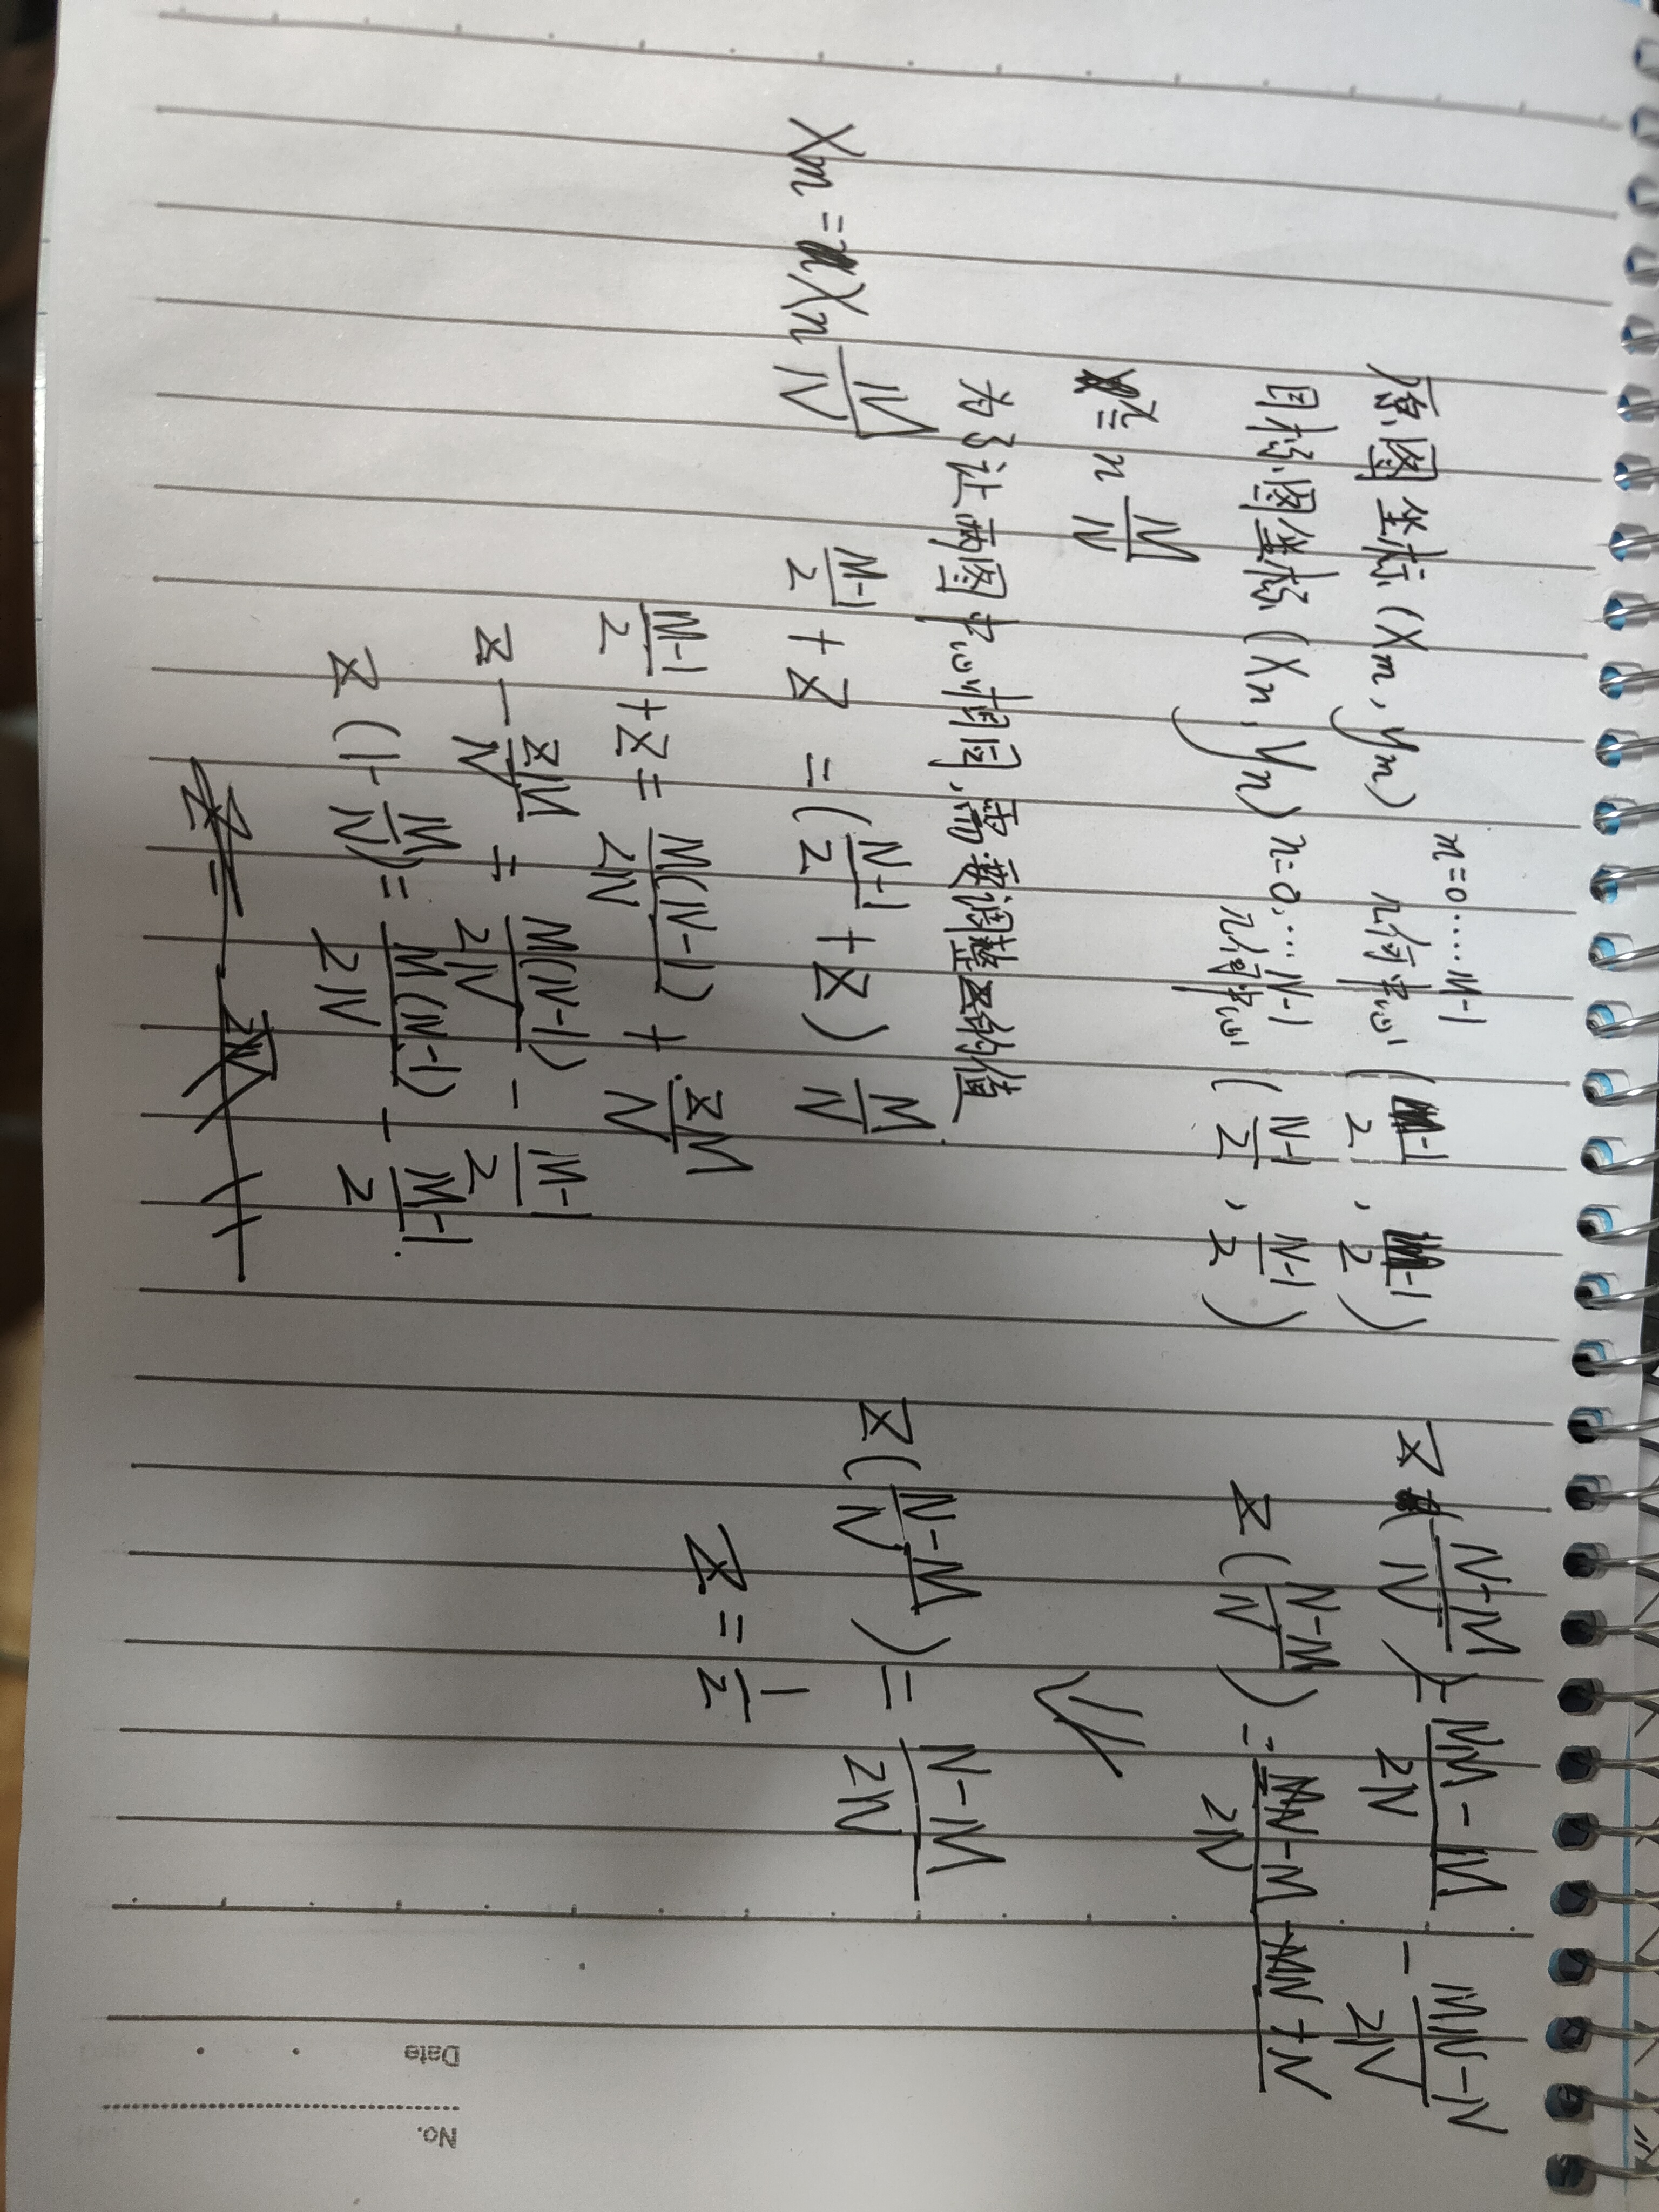 原图坐标(Xm, ym) m=0····M-1
几何中心 (M-1/2 , M-1/2)
目标图坐标(Xn, yn) n=0,···N-1
几何中心 (N-1/2 , N-1/2)
x = n M/N
为了让两图中心相同,需要调整z的值.
Xm = Xn M/N
M-1/2 + Z = (N-1/2 + Z) M/N
M-1/2 + Z = M(N-1)/2N + ZM/N
Z - ZM/N = M(N-1)/2N - M-1/2
Z (1- M/N) = M(N-1)/2N - M-1/2.
Z (N-M/N) = NM-M/2N - MN-N/2N
Z (N-M/N) = MN-M-MN+N/2N
Z (N-M/N) = N-M/2N
Z = 1/2
No.
Date